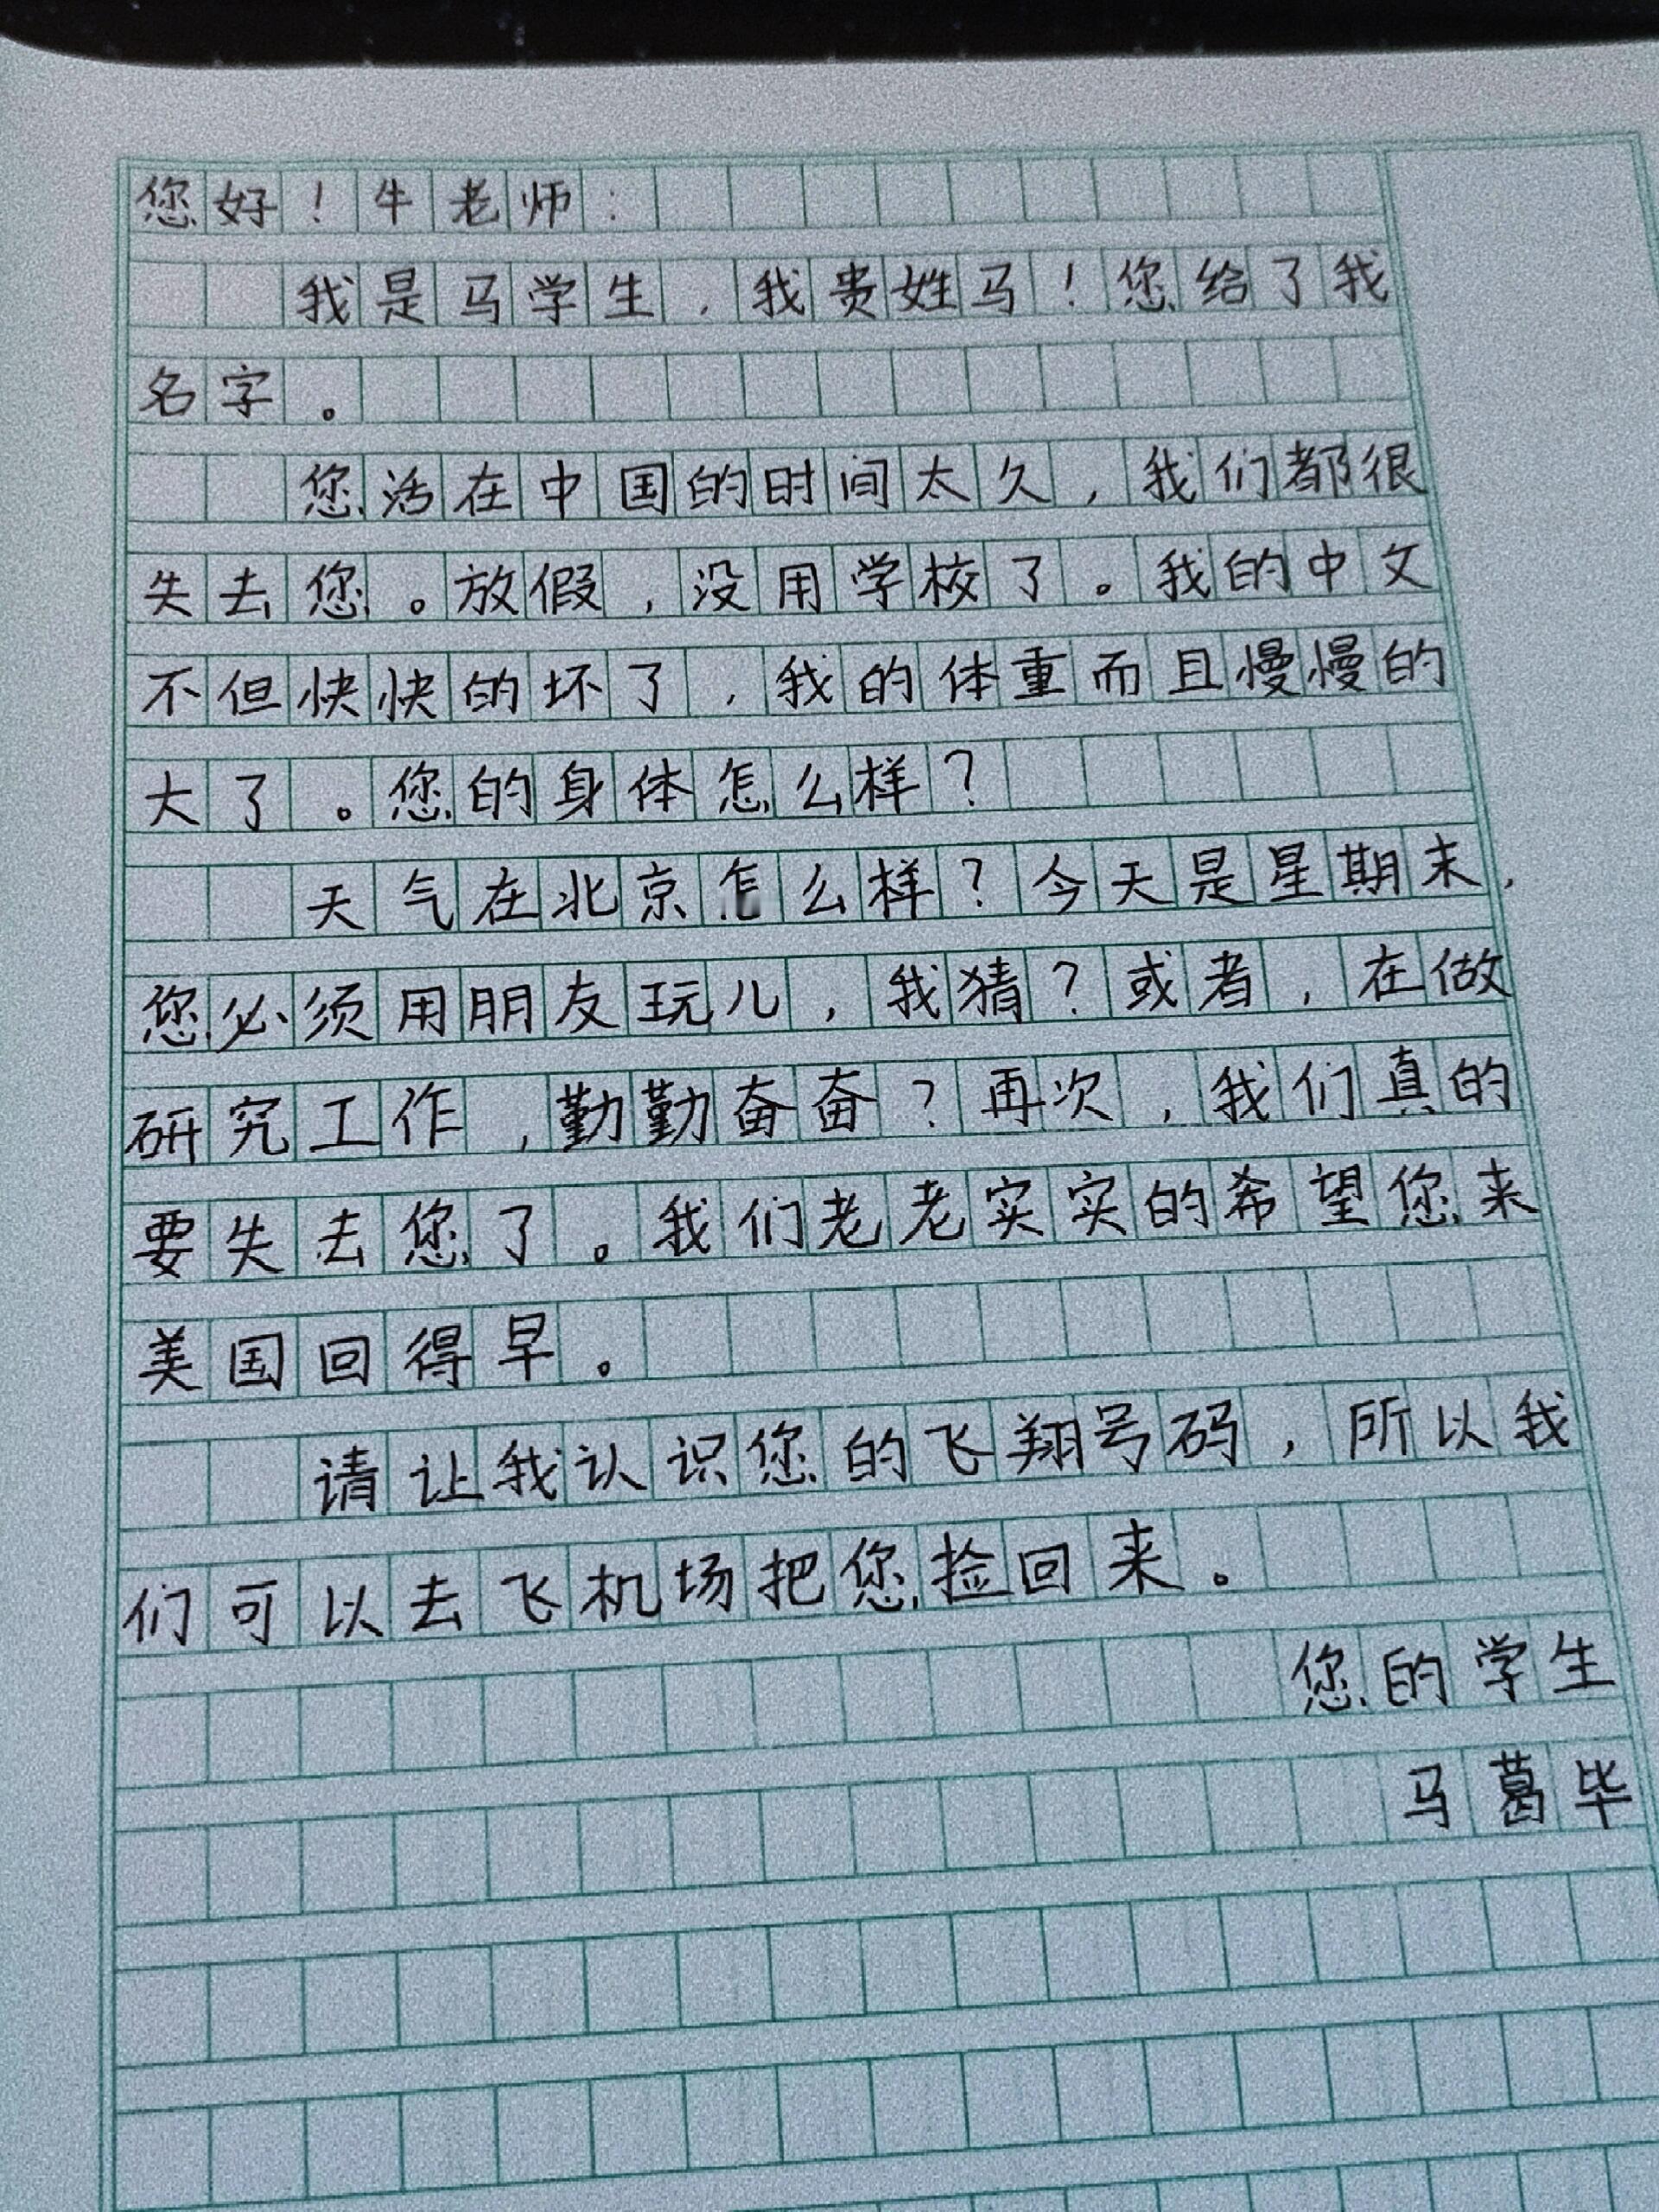 您好！牛老师：
我是马学生，我贵姓马！您给了我
名字。
您活在中国的时间太久，我们都很
失去您。放假，没用学校了。我的中文
不但快快的坏了，我的体重而且慢慢的
大了。您的身体怎么样？
天气在北京怎么样？今天是星期末，
您必须用朋友玩儿，我猜？或者，在做
研究工作，勤勤奋奋？再次，我们真的
要失去您了。我们老老实实的希望您来
美国回得早。
请让我认识您的飞翔号码，所以我
们可以去飞机场把您捡回来。
您的学生
马葛毕